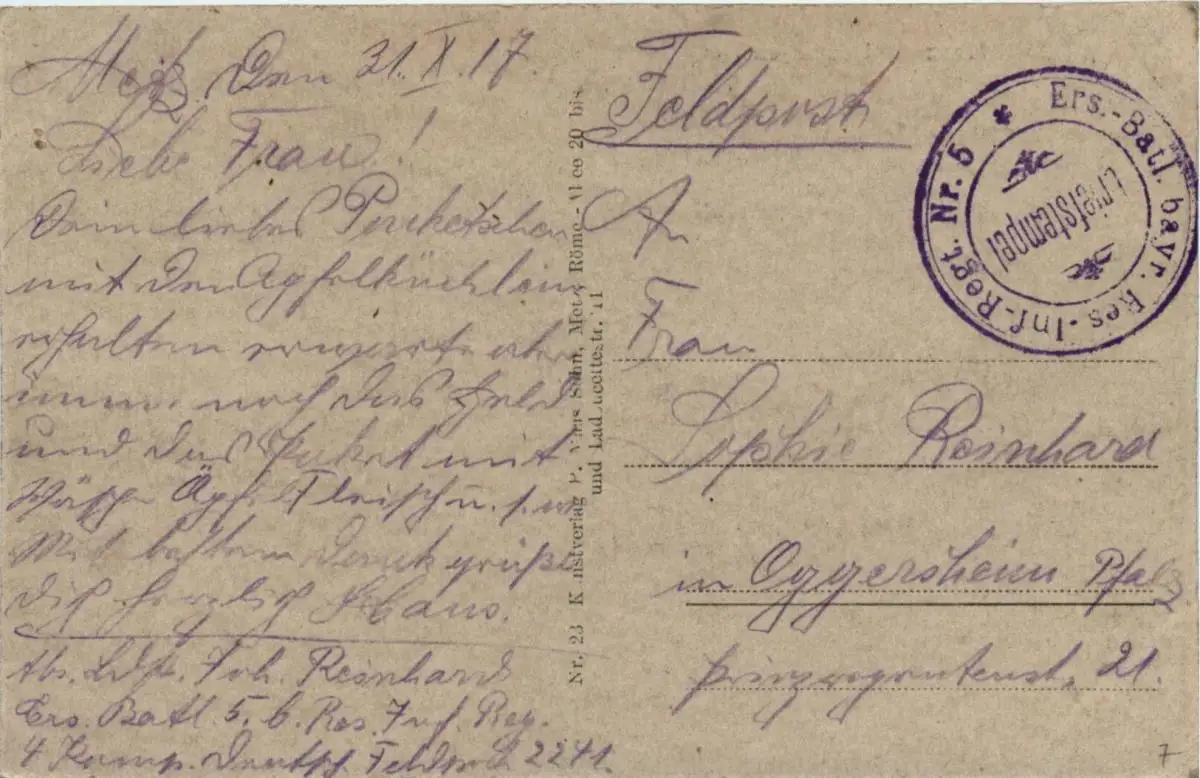 Metz, Den 31. X. 17.
Liebe Frau!
Dein liebes Packetchen
mit den Apfelküchlein
erhalten erwarte aber
immer noch das Geld
und das Paket mit
Wäsche Äpf. Fleisch u. s. w.
Mit bestem Dank grüßt
Dich herzlich Hans.
Abs. Ldst. Joh. Reinhard
Ers. Batl. 5. b. Res. Inf. Reg.
4 Komp. Deutsch. Feldpost 2241.
Nr. 23 Kunstverlag P. Sohn, Metz Römer-Allee 20 bis
und
Feldpost
An
Frau
Sophie Reinhard
in Oggersheim Pfalz
Prinzregentenst. 21.
Ers.-Batl. bayr. Res.-Inf.-Regt. Nr. 5 *
Briefstempel
7